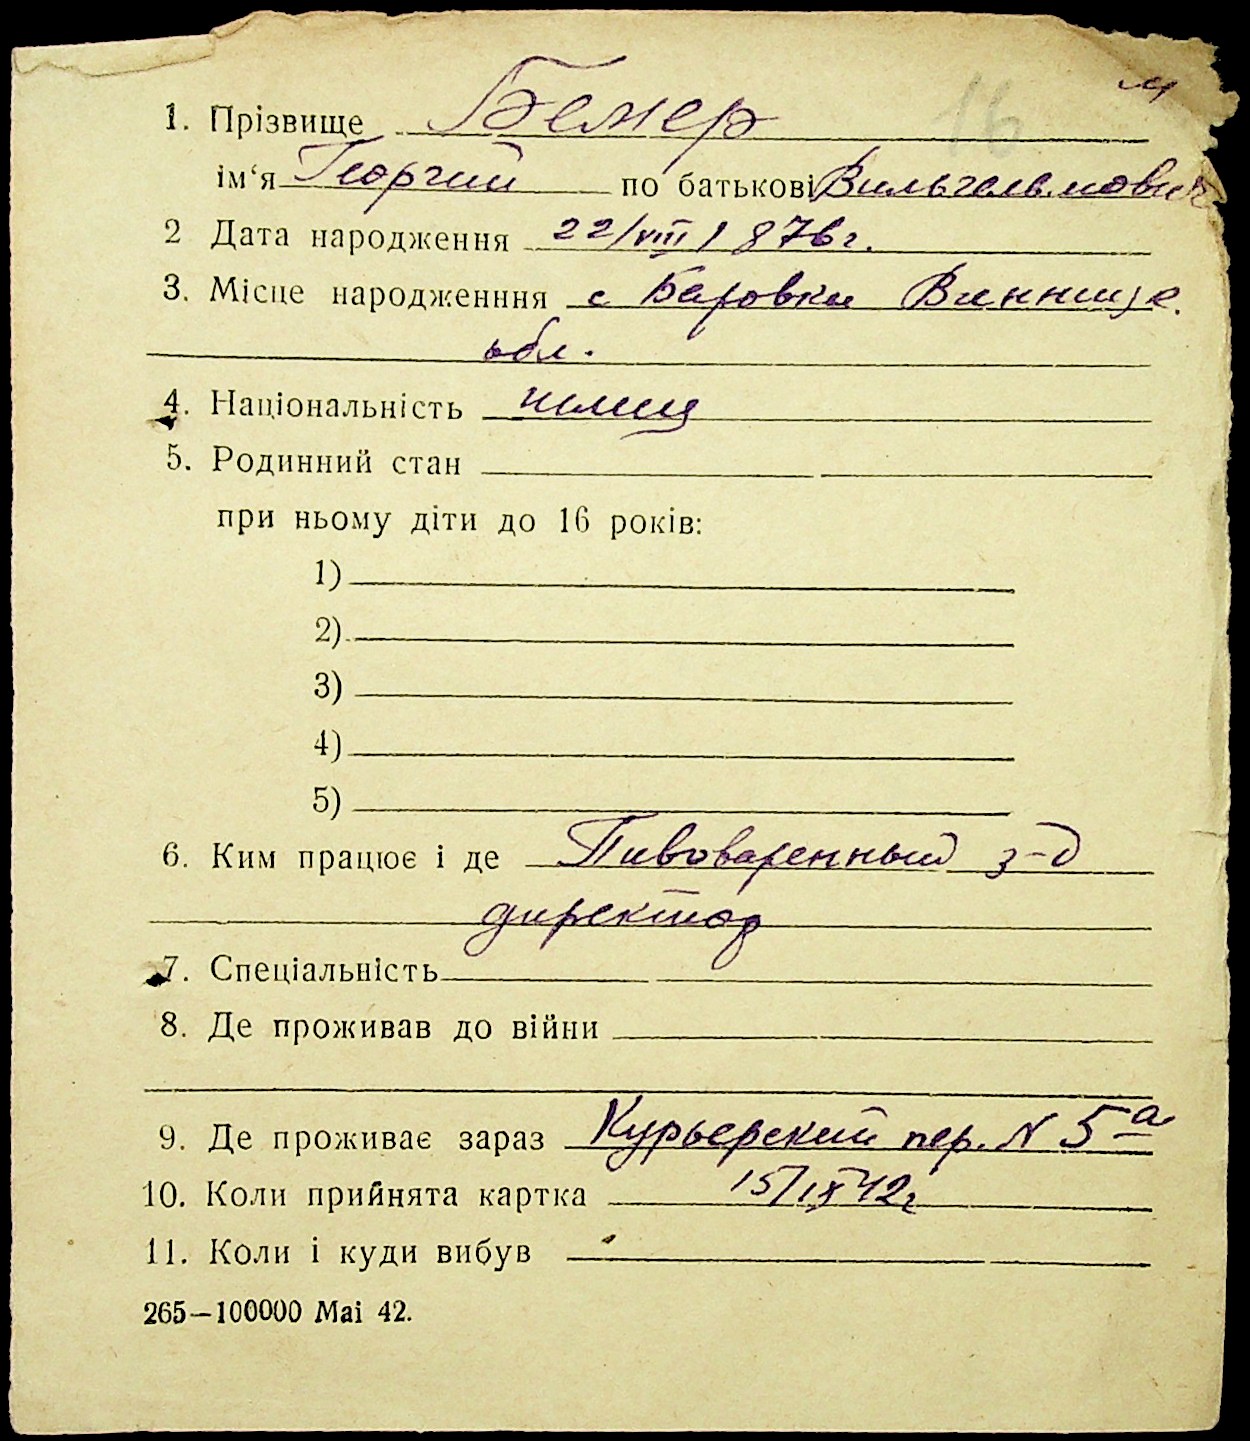 16 м
1. Прізвище Бемер
ім‘я Георгий по батькові Вильгельмович
2 Дата народження 22/VIII 1876г.
3. Місце народженння с Баровка Винницк.
обл.
4. Національність немец
5. Родинний стан
при ньому діти до 16 років:
1)
2)
3)
4)
5)
6. Ким працює і де Пивоваренный з-д
директор
7. Спеціальність
8. Де проживав до війни
9. Де проживає зараз Курьерский пер. N 5а
10. Коли прийнята картка 15/IX 42г
11. Коли і куди вибув
265—100000 Mai 42.